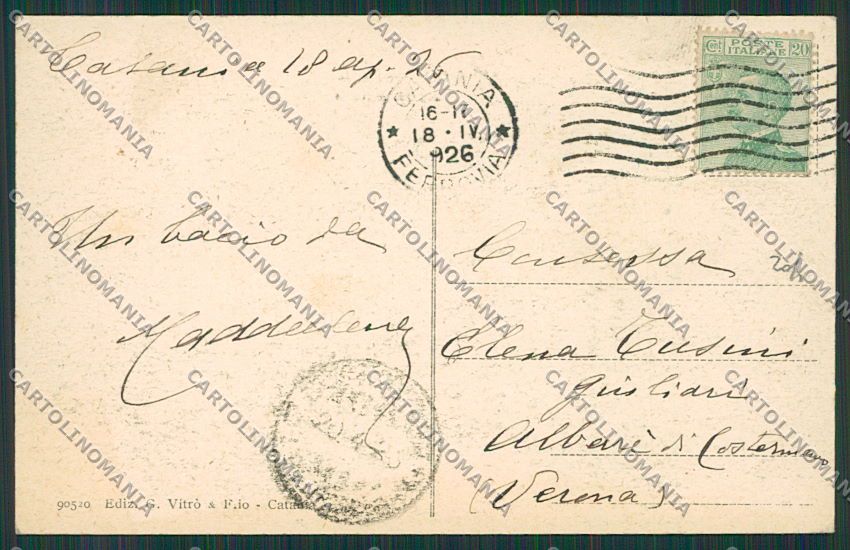 Catania 18 ap. 26
CATANIA
16-17
18 · IV.
926
FERROVIA
Ct POSTE ITALIANE 20
Un bacio da
Maddalena
Contessa
Elena Cusini
Giuliari
Albarè di Costermano
(Verona)
90520 Ediz. G. Vitrò & F.io - Catania
CARTOLINOMANIA